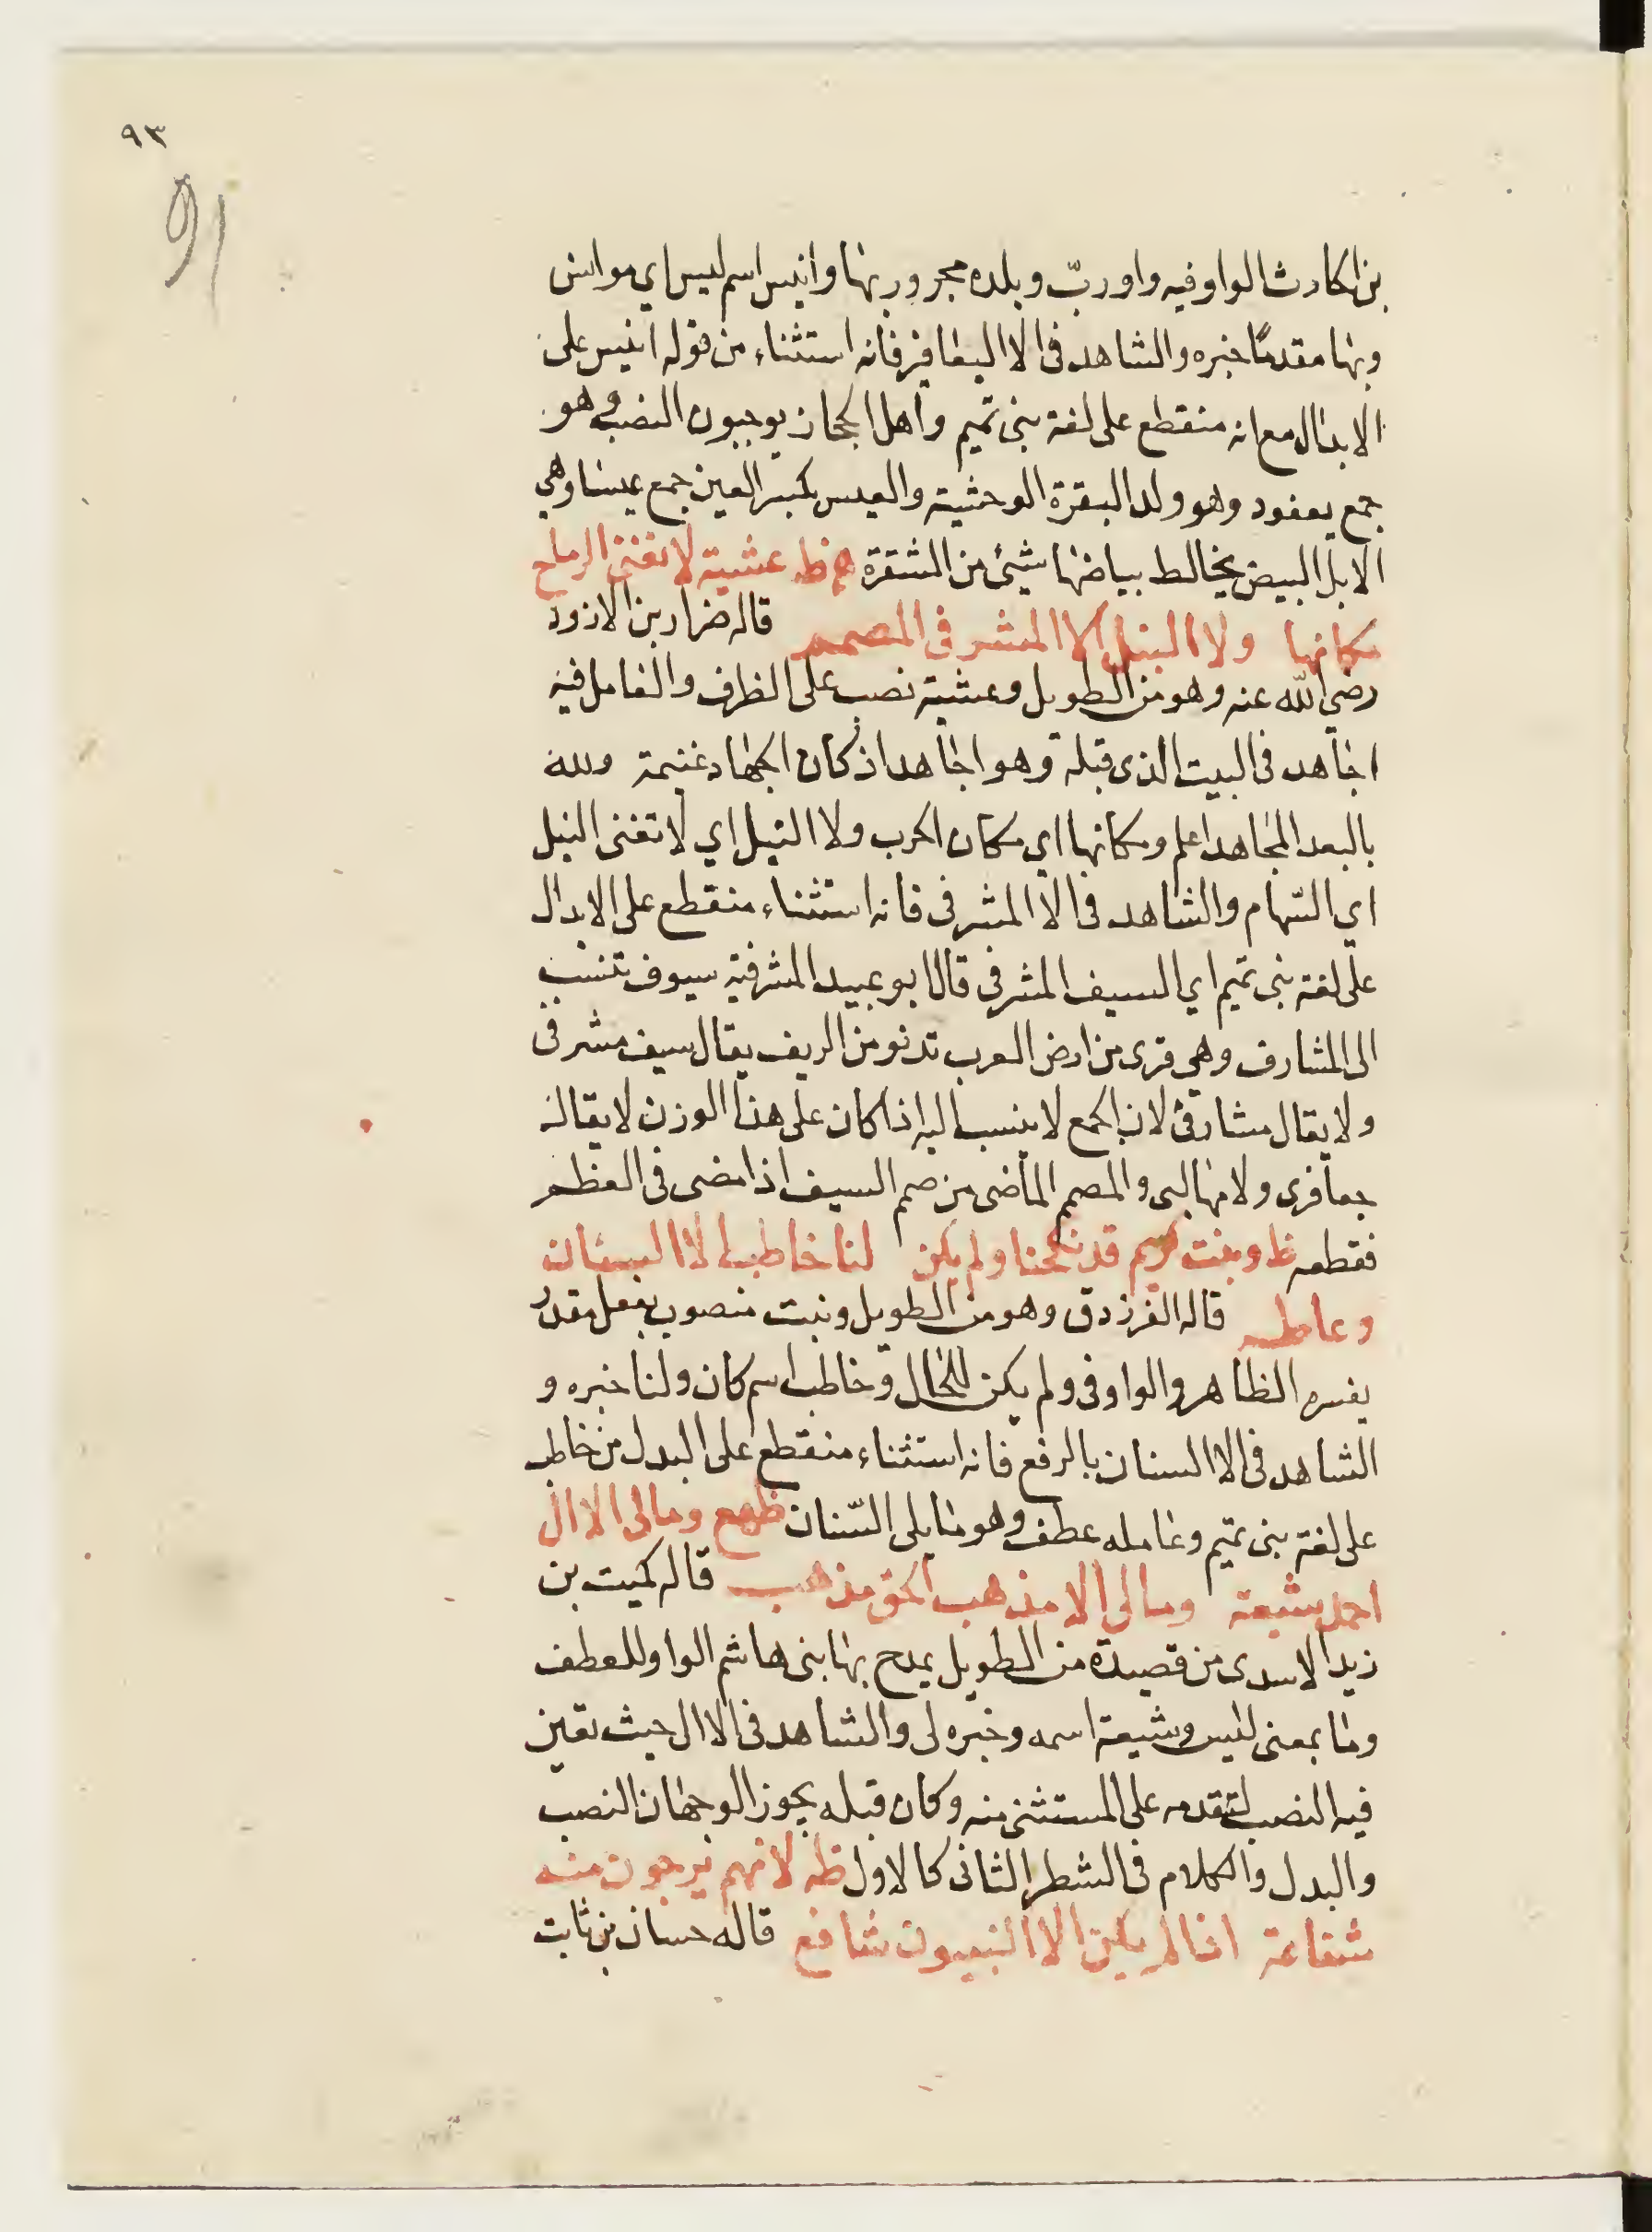 ٩٣
91
بن الحارث الواو فيه واو ربّ وبلده مجرور بها وانيس اسم ليس اي مواس
وبها مقدمًا خبره والشاهد فى الا اليعافير فانه استثناء من قوله انيس على
الابدال مع انه منقطع على لغة بنى تميم واهل الحجاز يوجبون النصب وهو
جمع يعفود وهو ولد البقرة الوحشية والعيس بكسر العين جمع عيسا وهي
الابل البيض يخالط بياضها شئ من الشقرة ظ عشية لا تغنى الرماح
مكانها ولا النبل الا المشرفى المصمم قاله ضرار بن الازود
رضي الله عنه وهو من الطويل وعشية نصب على الظرف والعامل فيه
اجاهد فى البيت الذى قبله وهو اجاهد اذ كان الجهاد غنيمة ولله
بالبعد المجاهد اعلم ومكانها اي مكان الحرب ولا النبل اي لا تغنى النبل
اي السّهام والشاهد فى الا المشرفى فانه استثناء منقطع على الابدال
على لغة بنى تميم اي السيف المشرفى قال ابو عبيد المشرفية سيوف تنسب
الى المشارف وهي قرى من ارض العرب تدنو من الريف يقال سيف مشرفى
ولا يقال مشارفى لان الجمع لا ينسب اليه اذا كان على هذا الوزن لا يقال
جعافرى ولا مهالبى والمصمم الماضى من صمم السيف اذا مضى فى العظم
فقطعه ظ وبنت كريم قد نكحنا ولم يكن لنا خاطب الا السنان
وعامله قاله الفرزدق وهو من الطويل وبنت منصوب بفعل مقدر
يفسره الظاهر والواو فى ولم يكن للحال وخاطب اسم كان ولنا خبره و
الشاهد فى الا السنان بالرفع فانه استثناء منقطع على البدل من خاطب
على لغة بنى تميم وعامله عطف وهو ما يلى السّنان ظهع ومالى الا ال
احمد شيعة ومالى الا مذهب الحق مذهب قاله كميت بن
زيد الاسدى من قصيدة من الطويل يمدح بها بنى هاشم الواو للعطف
وما بمعنى ليس وشيعة اسمه وخبره لى والشاهد فى الا ال حيث تعين
فيه النصب لتقدمه على المستثنى منه وكان قبله يجوز الوجهان النصب
والبدل والكلام فى الشطر الثانى كالاول ظه لانهم يرجون منه
شفاعة اذا لم يكن الا النبيون شافع قاله حسان بن ثابت